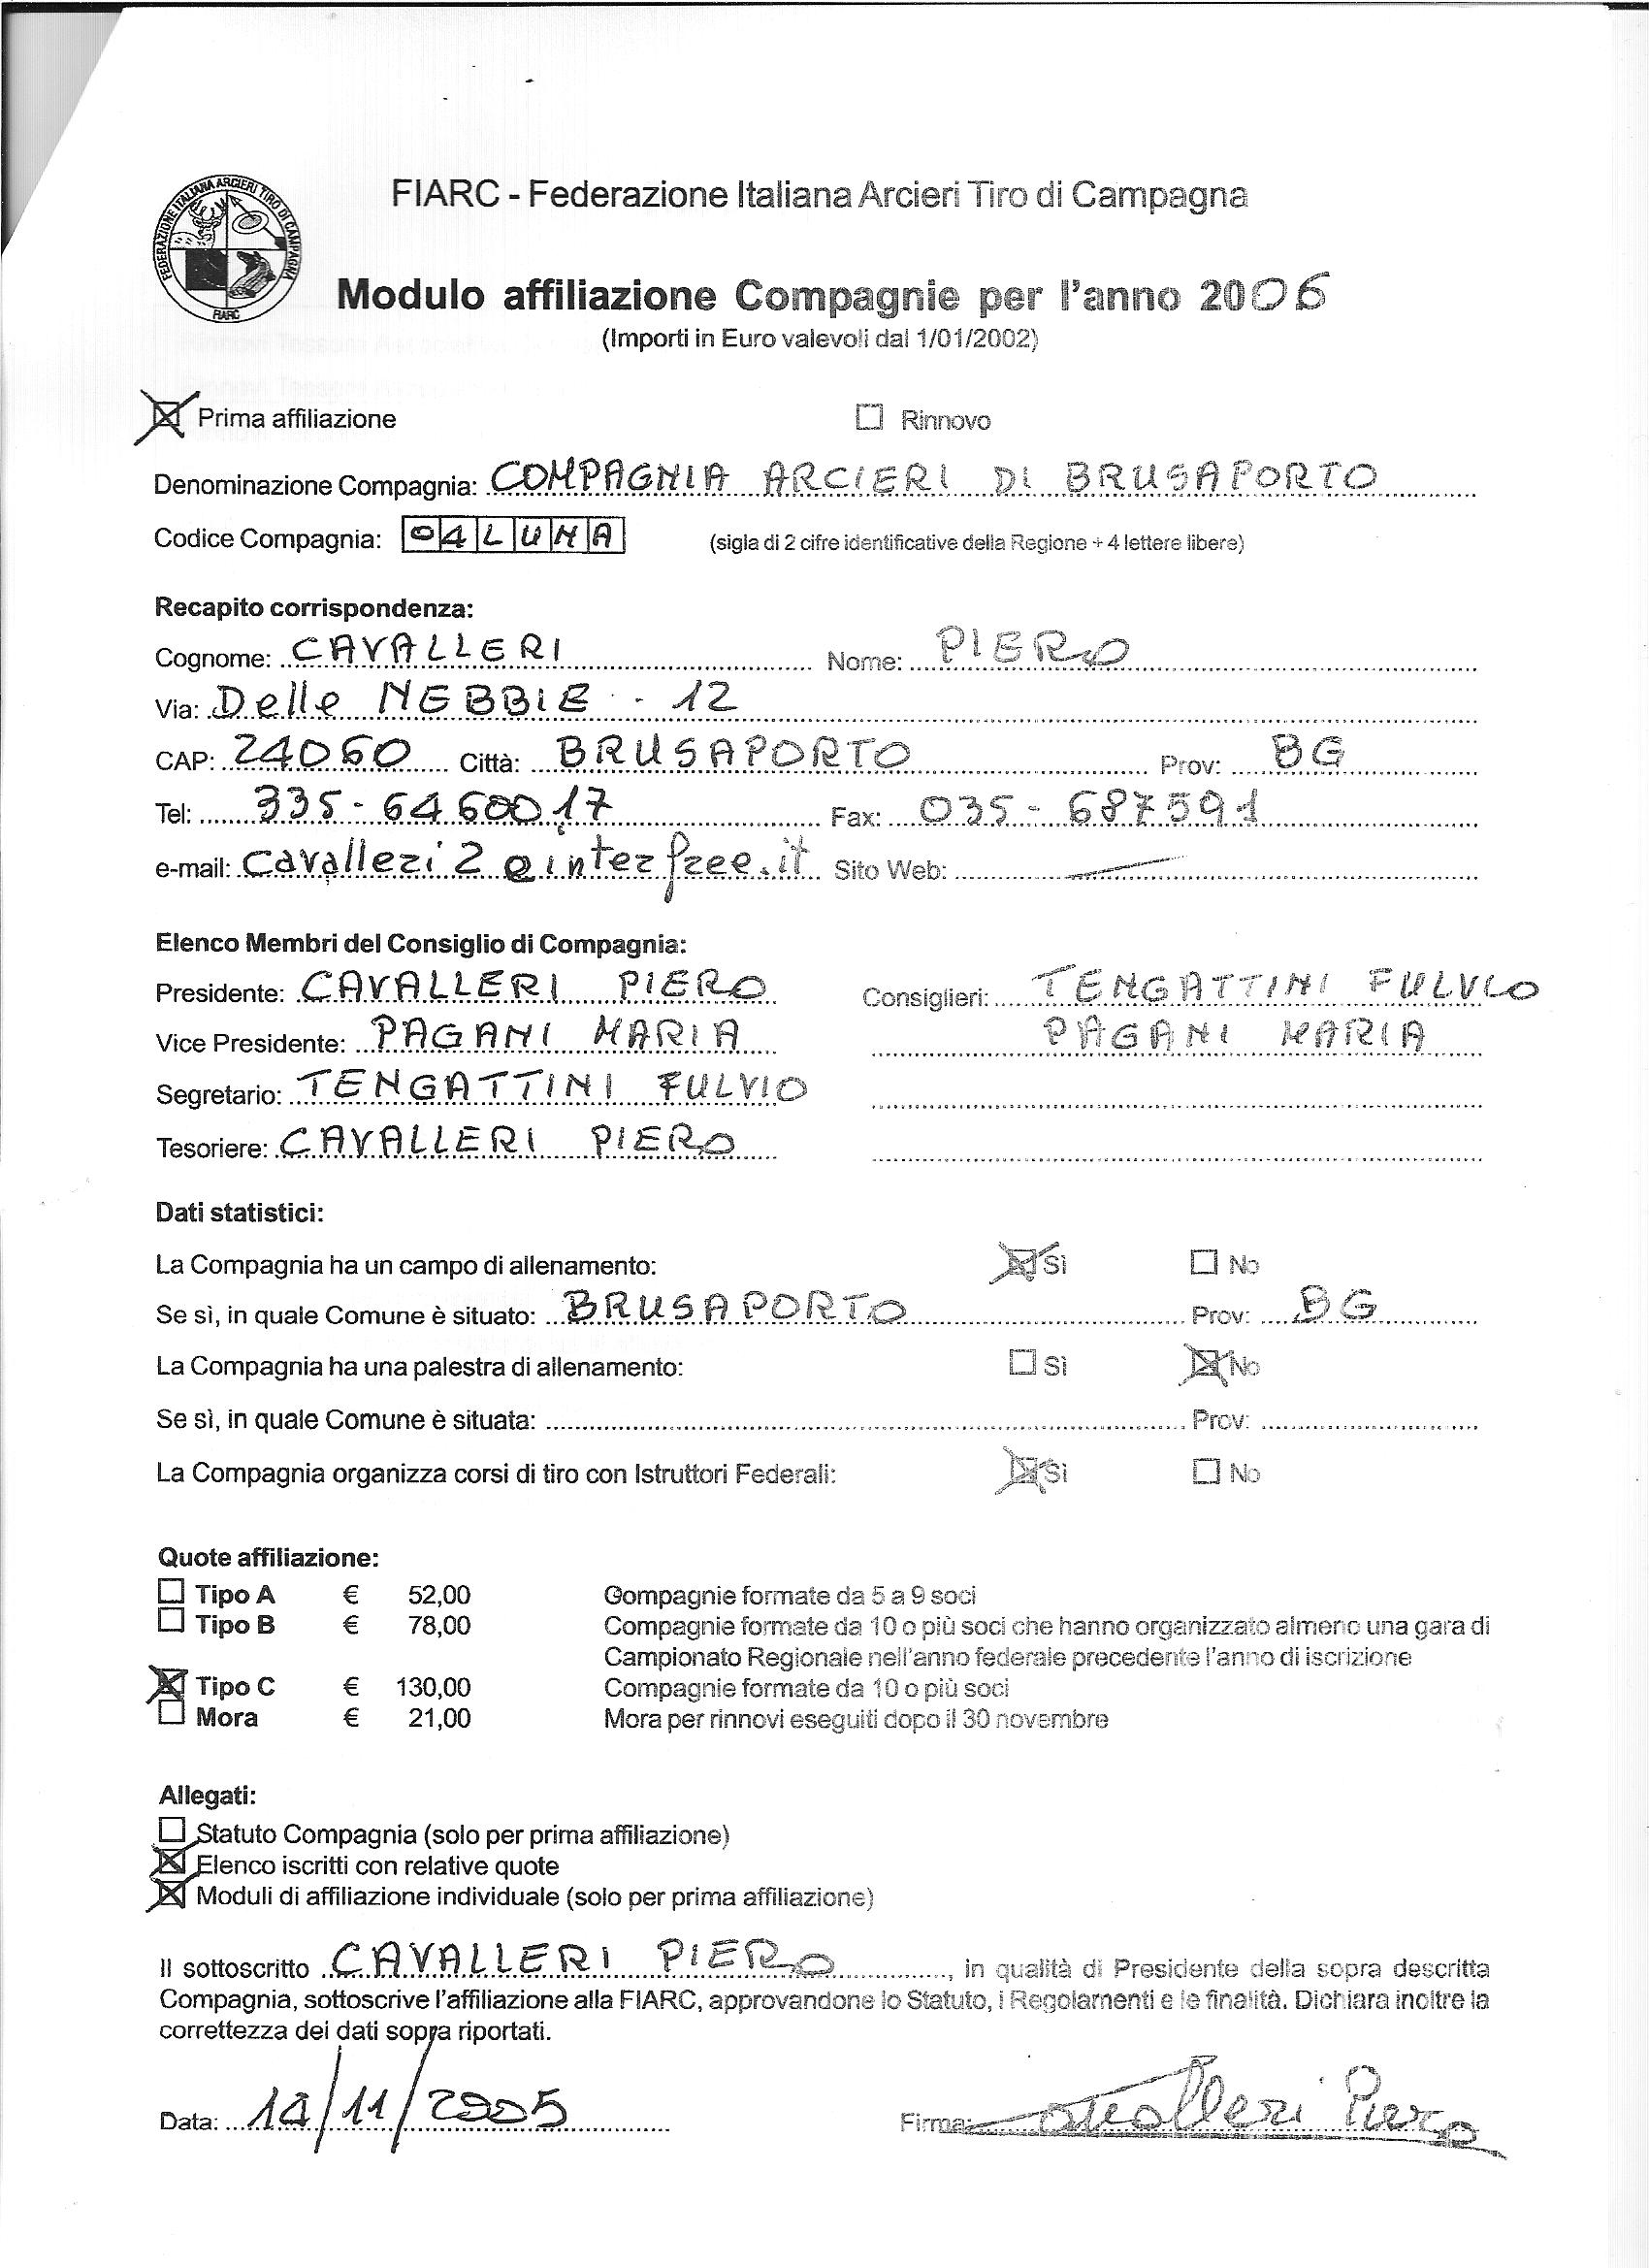 FEDERAZIONE ITALIANA ARCIERI TIRO DI CAMPAGNA
FIARC
FIARC - Federazione Italiana Arcieri Tiro di Campagna
Modulo affiliazione Compagnie per l'anno 2006
(Importi in Euro valevoli dal 1/01/2002)
Prima affiliazione Rinnovo
Denominazione Compagnia: COMPAGNIA ARCIERI DI BRUSAPORTO
Codice Compagnia: 04LUNA (sigla di 2 cifre identificative della Regione + 4 lettere libere)
Recapito corrispondenza:
Cognome: CAVALLERI Nome: PIERO
Via: Delle NEBBIE - 12
CAP: 24060 Città: BRUSAPORTO Prov: BG
Tel: 335-6460017 Fax: 035-687591
e-mail: cavalleri2@interfree.it Sito Web:
Elenco Membri del Consiglio di Compagnia:
Presidente: CAVALLERI PIERO Consiglieri: TENGATTINI FULVIO
Vice Presidente: PAGANI MARIA PAGANI MARIA
Segretario: TENGATTINI FULVIO
Tesoriere: CAVALLERI PIERO
Dati statistici:
La Compagnia ha un campo di allenamento: Sì No
Se sì, in quale Comune è situato: BRUSAPORTO Prov: BG
La Compagnia ha una palestra di allenamento: Sì No
Se sì, in quale Comune è situata: Prov:
La Compagnia organizza corsi di tiro con Istruttori Federali: Sì No
Quote affiliazione:
Tipo A € 52,00 Compagnie formate da 5 a 9 soci
Tipo B € 78,00 Compagnie formate da 10 o più soci che hanno organizzato almeno una gara di
Campionato Regionale nell'anno federale precedente l'anno di iscrizione
Tipo C € 130,00 Compagnie formate da 10 o più soci
Mora € 21,00 Mora per rinnovi eseguiti dopo il 30 novembre
Allegati:
Statuto Compagnia (solo per prima affiliazione)
Elenco iscritti con relative quote
Moduli di affiliazione individuale (solo per prima affiliazione)
Il sottoscritto CAVALLERI PIERO, in qualità di Presidente della sopra descritta
Compagnia, sottoscrive l'affiliazione alla FIARC, approvandone lo Statuto, i Regolamenti e le finalità. Dichiara inoltre la
correttezza dei dati sopra riportati.
Data: /11/2005 Firma: Cavalleri Piero